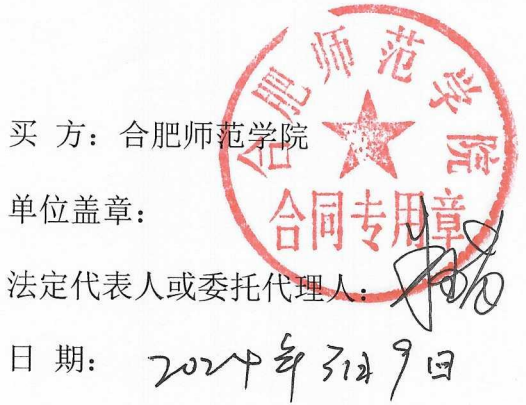 合肥师范学院
合同专用章
买 方：合肥师范学院
单位盖章：
法定代表人或委托代理人：
日 期： 2024年 月9日